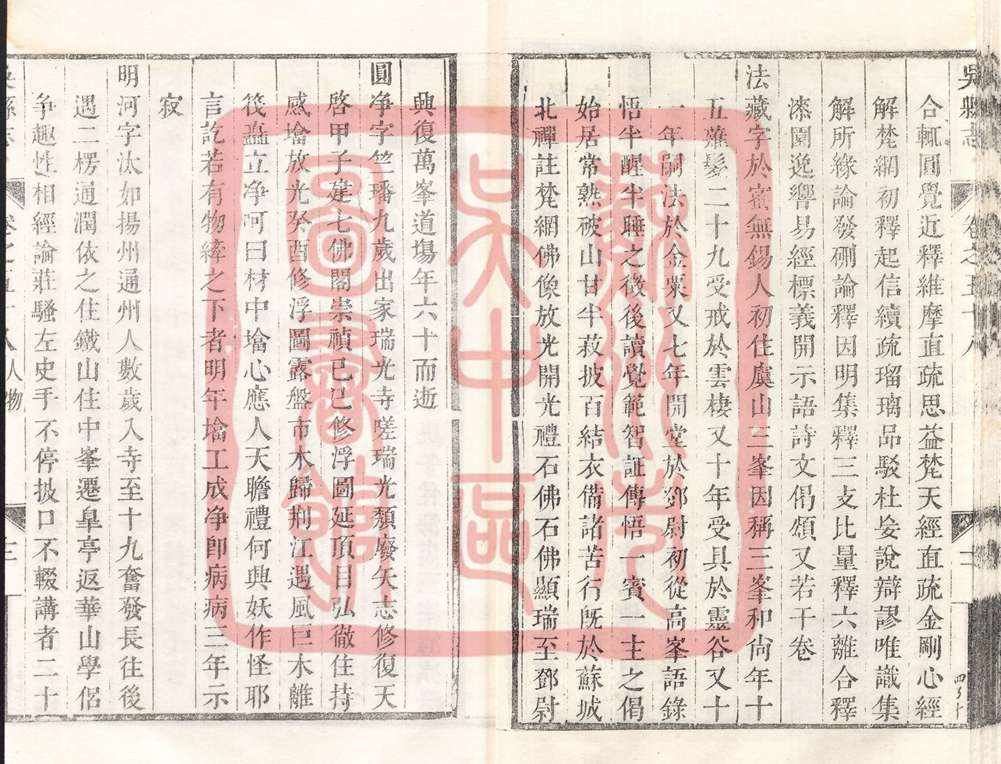 吳縣志 卷之五十八
合轍圓覺近釋維摩直疏思益梵天經直疏金剛心經
解梵網初釋起信續疏瑠璃品駁杜妄說辯謬唯識集
解所緣緣論發硎論釋因明集釋三支比量釋六離合釋
漆園逸響易經標義開示語詩文偈頌又若干卷
法藏字於蜜無錫人初住虞山三峯因稱三峯和尙年十
五薙髮二十九受戒於雲棲又十年受具於靈谷又十
一年嗣法於金粟又七年開堂於鄧尉初從高峯語錄
悟半醒半睡之徴後讀覺範智証傳悟一賓一主之偈
始居常熟破山甘半菽披百結衣備諸苦行旣於蘇城
北禪註梵網佛像放光開光禮石佛石佛顯瑞至鄧尉
興復萬峯道場年六十而逝
圓淨字竺璠九歲出家瑞光寺嗟瑞光頽廢矢志修復天
啓甲子建七佛閣崇禎己巳修浮圖延頂目弘徹住持
感墖放光癸酉修浮圖露盤市木歸荆江遇風巨木離
筏矗立淨呵曰材中墖心應人天瞻禮何與妖作怪耶
言訖若有物縴之下者明年墖工成淨卽病病三年示
寂
明河字汰如揚州通州人數歲入寺至十九奮發長往後
遇二楞通潤依之住鐵山住中峯遷臯亭返華山學侶
爭趣性相經論莊騷左史手不停披口不輟講者二十
吳縣志 卷之五十八 人物 三
蘇州市
吳中區
圖書館